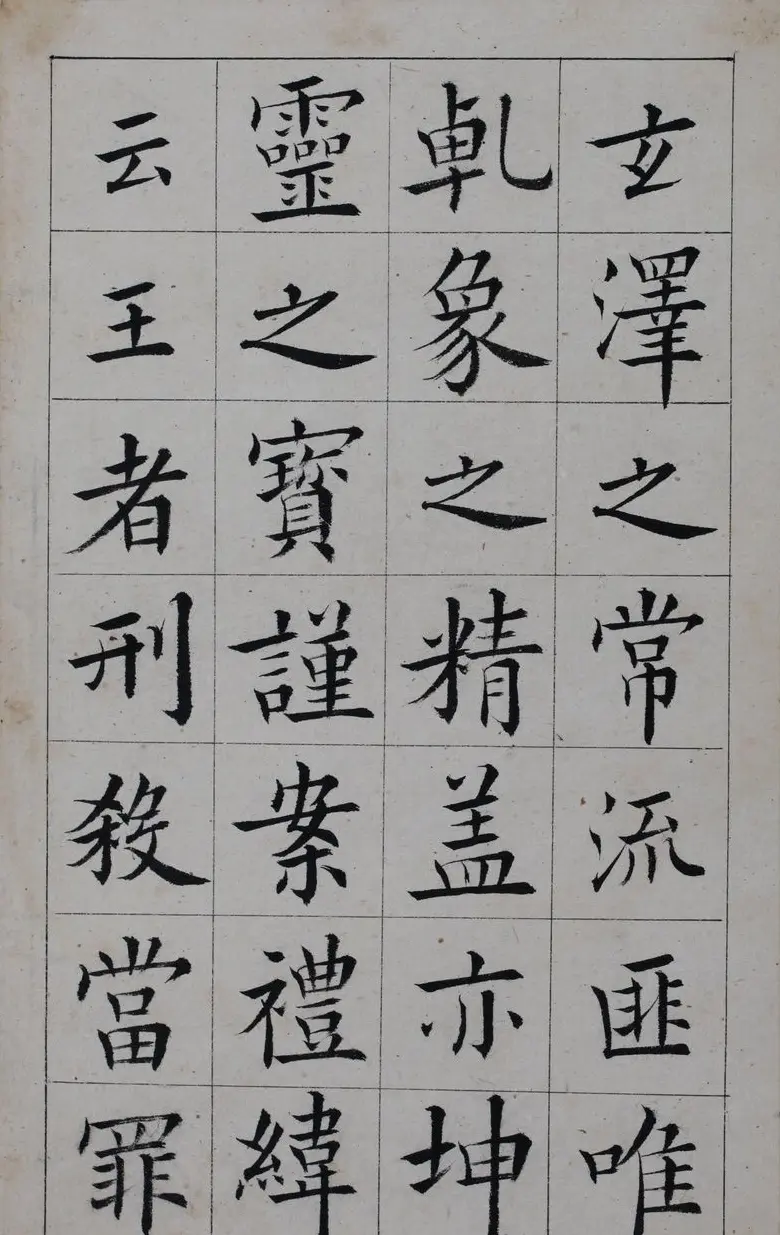 玄澤之常流匪唯
乹象之精盖亦坤
靈之寶謹案禮緯
云王者刑殺當罪